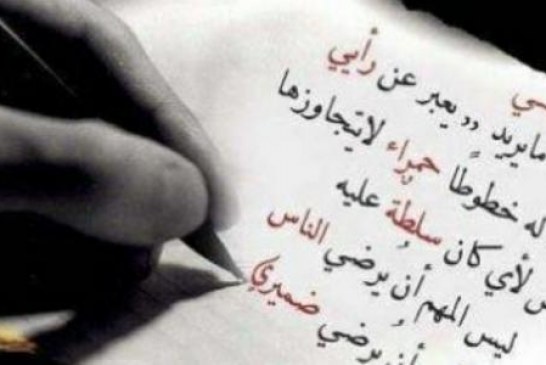 مايريد ,, يعبر عن رأيي
له خطوطاً حمراء لايتجاوزها
لأي كان سُلطةٌ عليه
ليس المهم أن يُرضي الناس
أن يُرضي ضميري